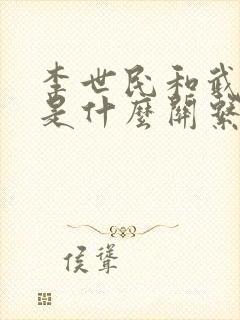 李世民和武
是什麼關繫
侯聳